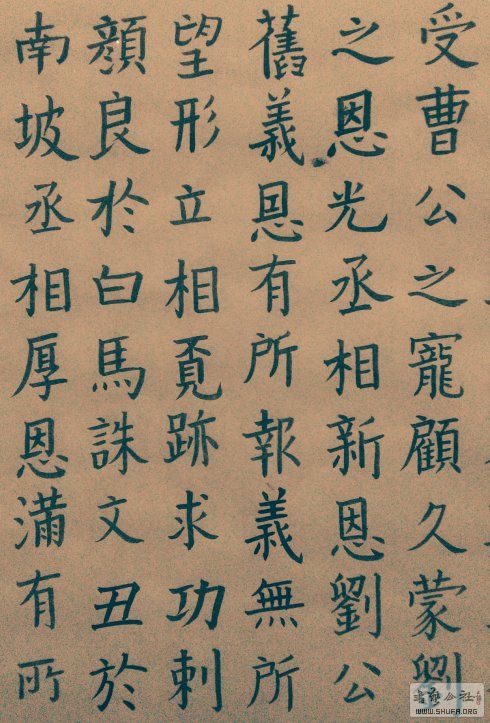 受曹公之寵顧久蒙劉
之恩光丞相新恩劉公
舊義恩有所報義無所
望形立相覔跡求功刺
顏良於白馬誅文丑於
南坡丞相厚恩滿有所
WWW.SHUFA.ORG